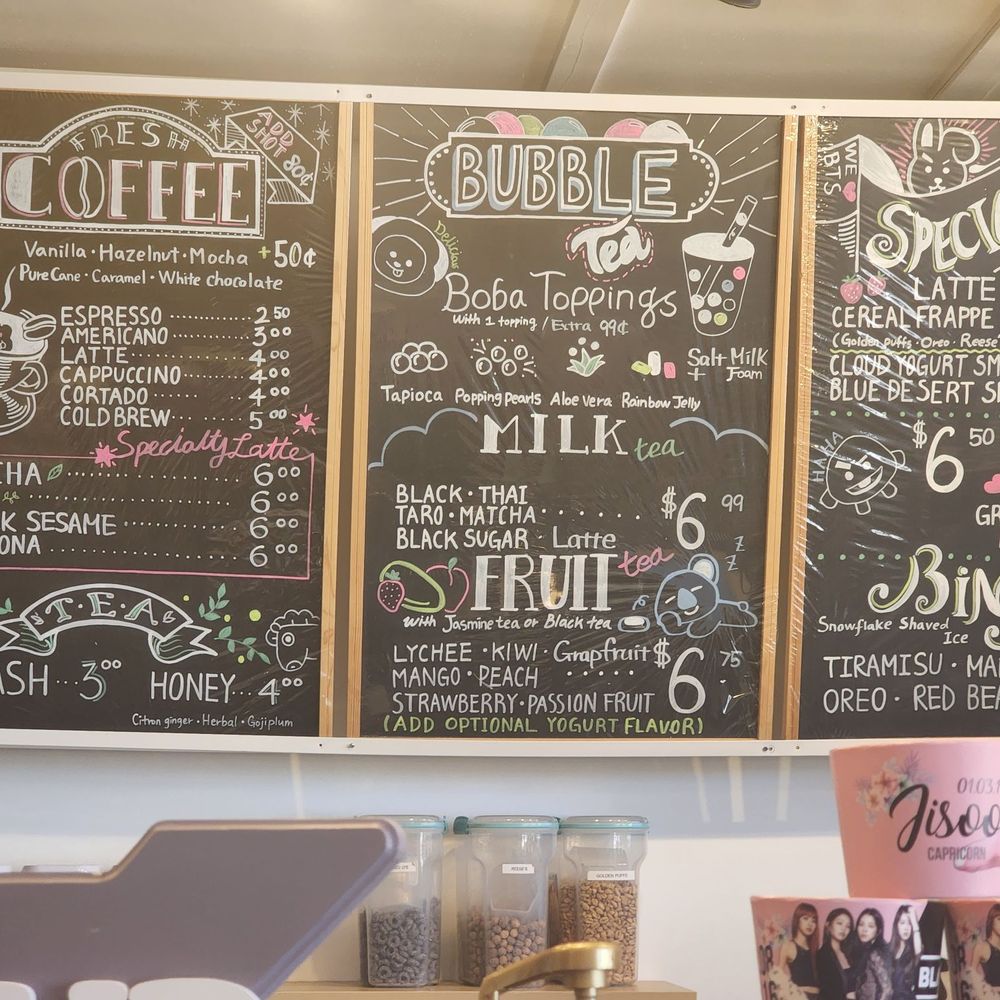 FRESH
COFFEE
ADD
SHOT 80¢
Vanilla · Hazelnut · Mocha +50¢
Pure Cane · Caramel · White chocolate
ESPRESSO 2 50
AMERICANO 3 00
LATTE 4 00
CAPPUCCINO 4 00
CORTADO 4 00
COLD BREW 5 00
Specialty Latte
CHA 6 00
6 00
K SESAME 6 00
ONA 6 00
TEA
ASH 3 00 HONEY 4 00
Citron ginger · Herbal · Gojiplum
BUBBLE
Tea
Delicious
Boba Toppings
With 1 topping / Extra 99¢
Salt Milk
+ Foam
Tapioca Popping pearls Aloe vera Rainbow Jelly
MILK tea
BLACK · THAI
TARO · MATCHA $6 99
BLACK SUGAR · Latte
FRUIT tea
Z
Z
with Jasmine tea or Black tea
LYCHEE · KIWI · Grapfruit $6 75
MANGO · PEACH
STRAWBERRY · PASSION FRUIT
(ADD OPTIONAL YOGURT FLAVOR)
WE
BTS
SPECI
LATTE
CEREAL FRAPPE
(Golden puffs · Oreo · Reese's
CLOUD YOGURT SM
BLUE DESERT S
HA HA
$6 50
GR
BIN
Snowflake Shaved
Ice
TIRAMISU · MA
OREO · RED BEA
REESE'S
GOLDEN PUFFS
01.03.1
Jisoo
CAPRICORN
BL